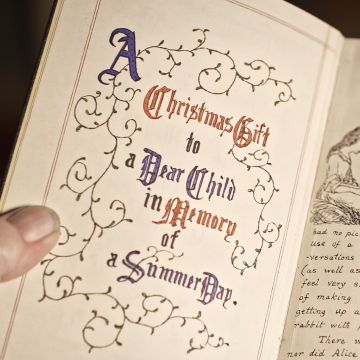 A
Christmas Gift
to
a Dear Child
in Memory
of
a Summer Day.
had no pic
use of a
-versations
(as well as
feel very s
of making
getting up a
rabbit with
There w
nor did Alice